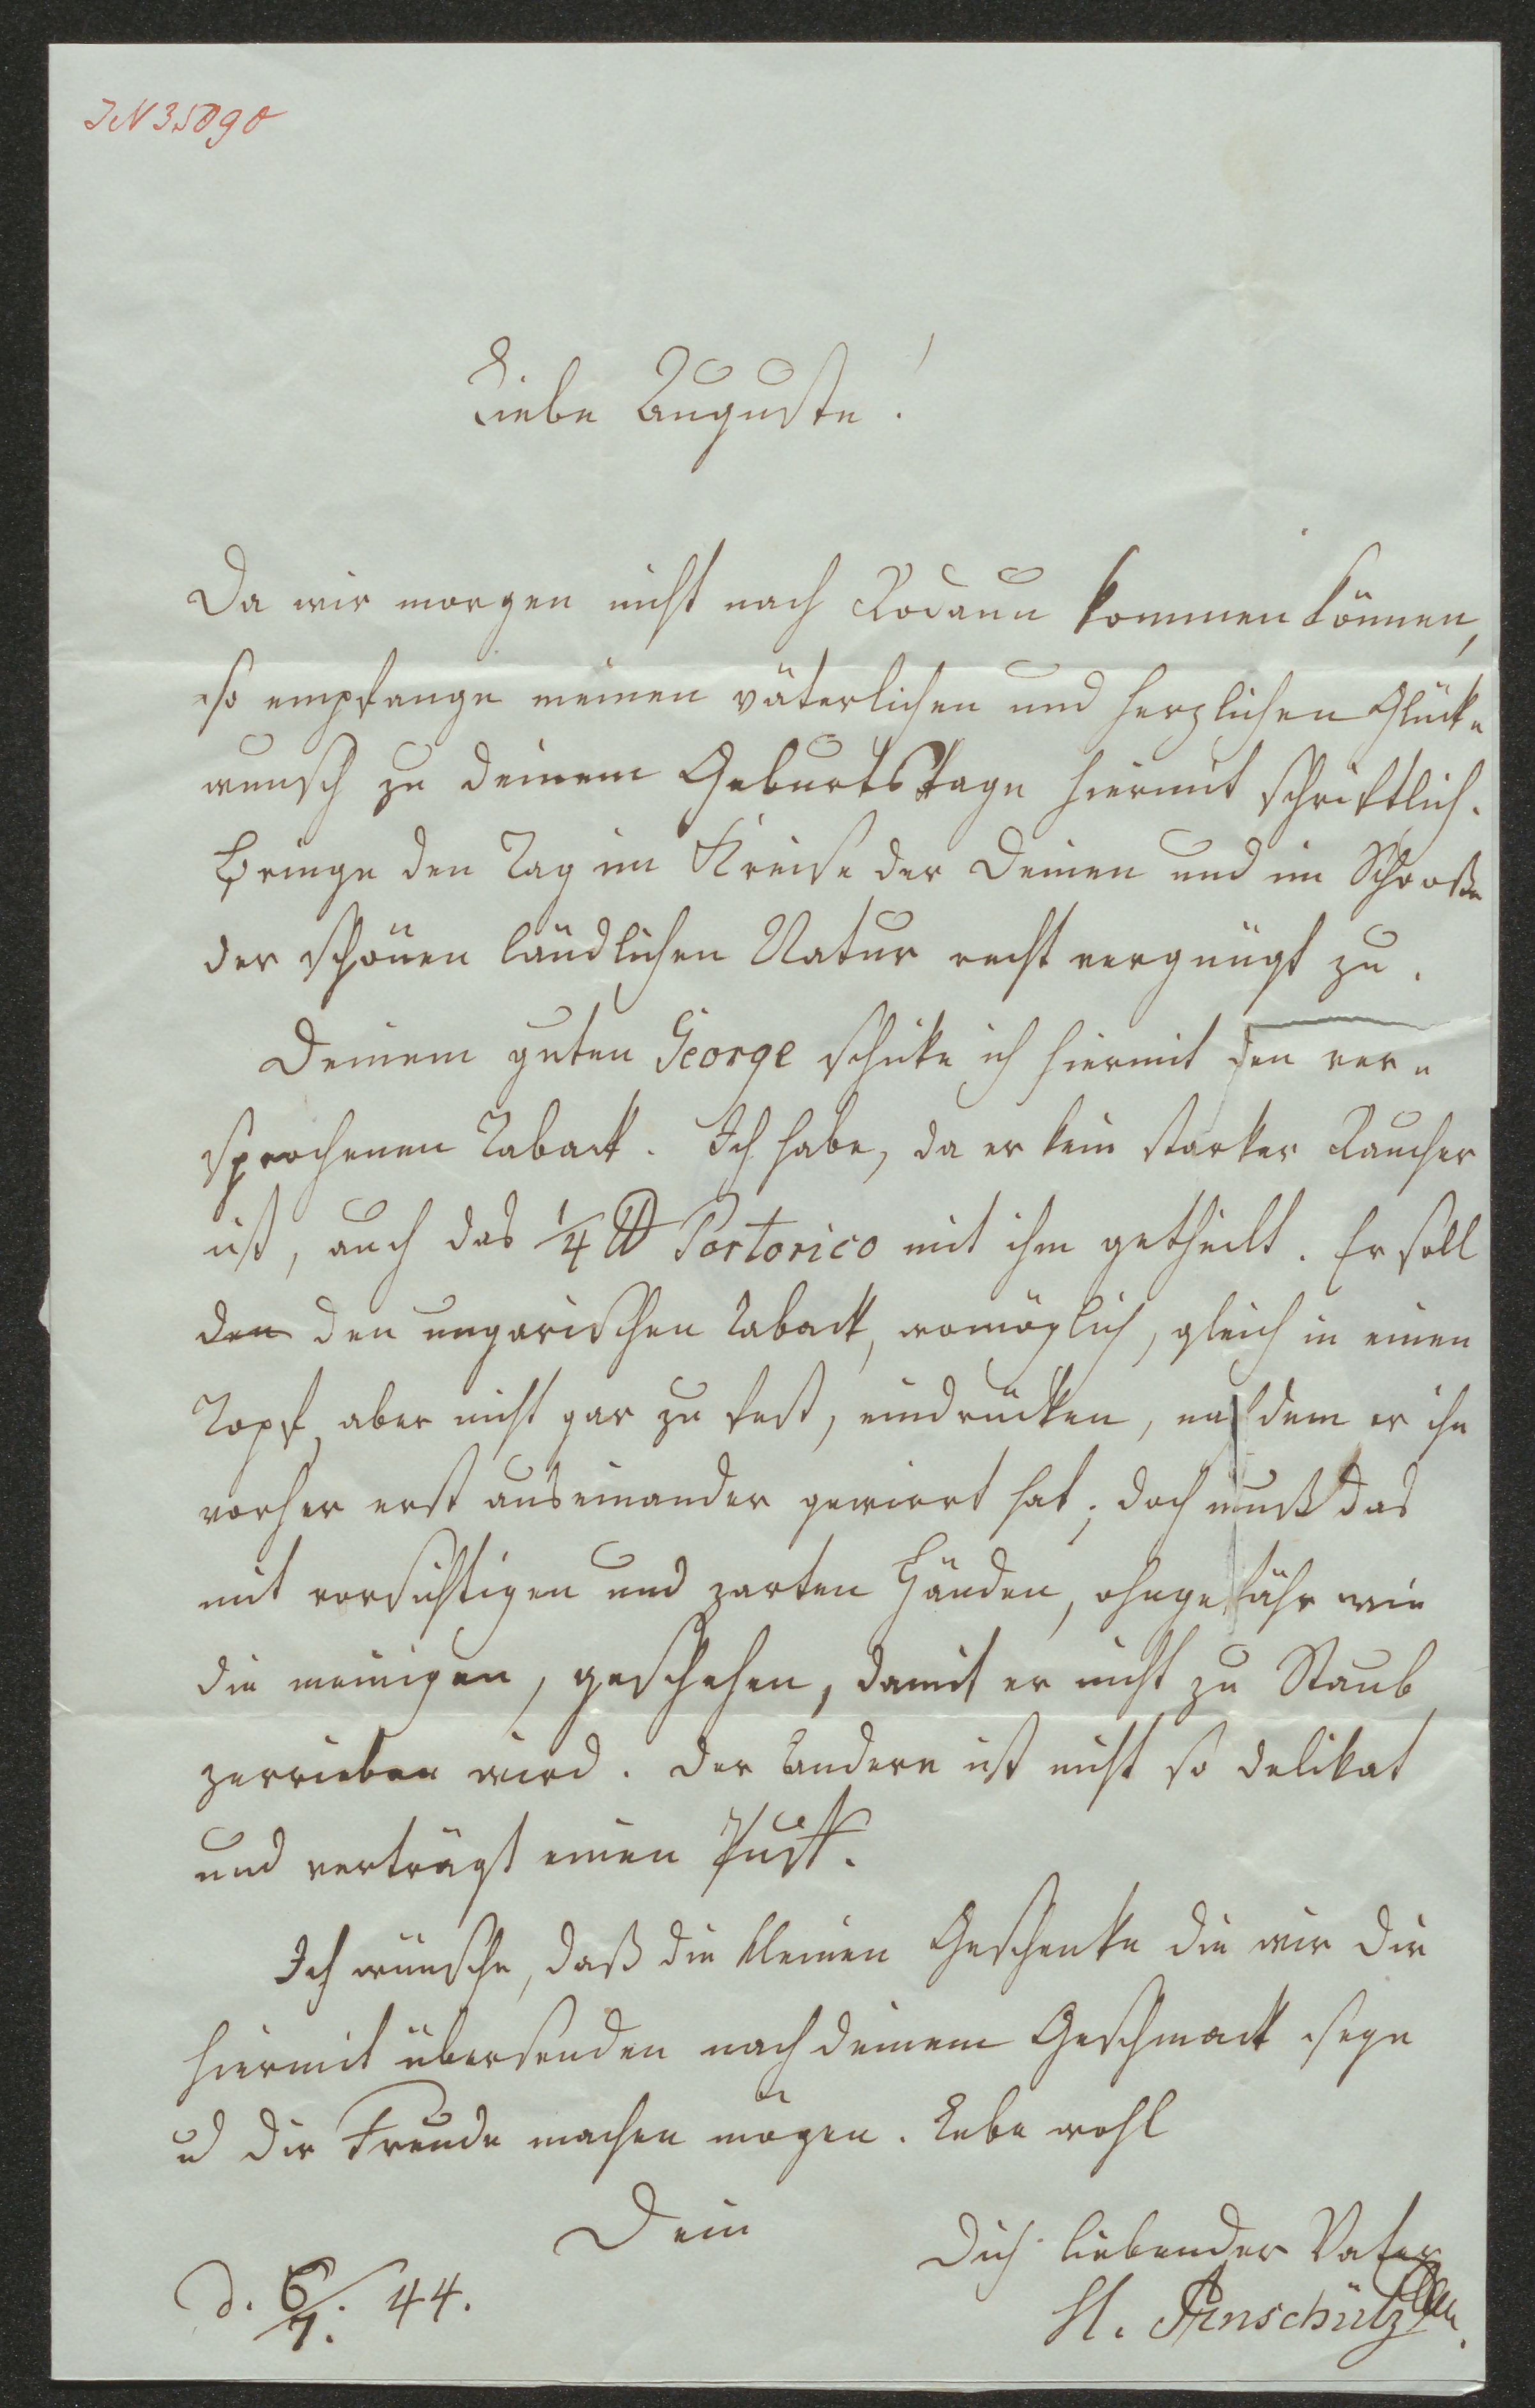 IN 35090
Liebe Auguste!
Da wir morgen nicht nach Rodaun kommen können,
so empfange meinen väterlichen und herzlichen Glück-
wunsch zu deinem Geburtstage hiermit schriftlich.
Bringe den Tag im Kreise der Deinen und im Schooße
der schönen ländlichen Natur recht vergnügt zu.
Deinem guten George schicke ich hiermit den ver-
sprochenen Taback. Ich habe, da er kein starker Raucher
ist, auch das 1/4 ℔ Portorico mit ihm getheilt. Er soll
den den ungarischen Taback, womöglich, gleich in einen
Topf, aber nicht gar zu fest, eindrücken, nachdem er ihn
vorher erst auseinander gewirrt hat; doch muß das
mit vorsichtigen und zarten Händen, ohngefähr wie
die meinigen, geschehen, damit er nicht zu Staub
zerrieben wird. Der Andere ist nicht so delikat
und verträgt einen Puff.
Ich wünsche, daß die kleinen Geschenke die wir Dir
hiermit übersenden nach deinem Geschmack seyn
ud Dir Freude machen mögen. Lebe wohl
Dein
Dich liebender Vater
d. 6/7. 44.
H. Anschütz